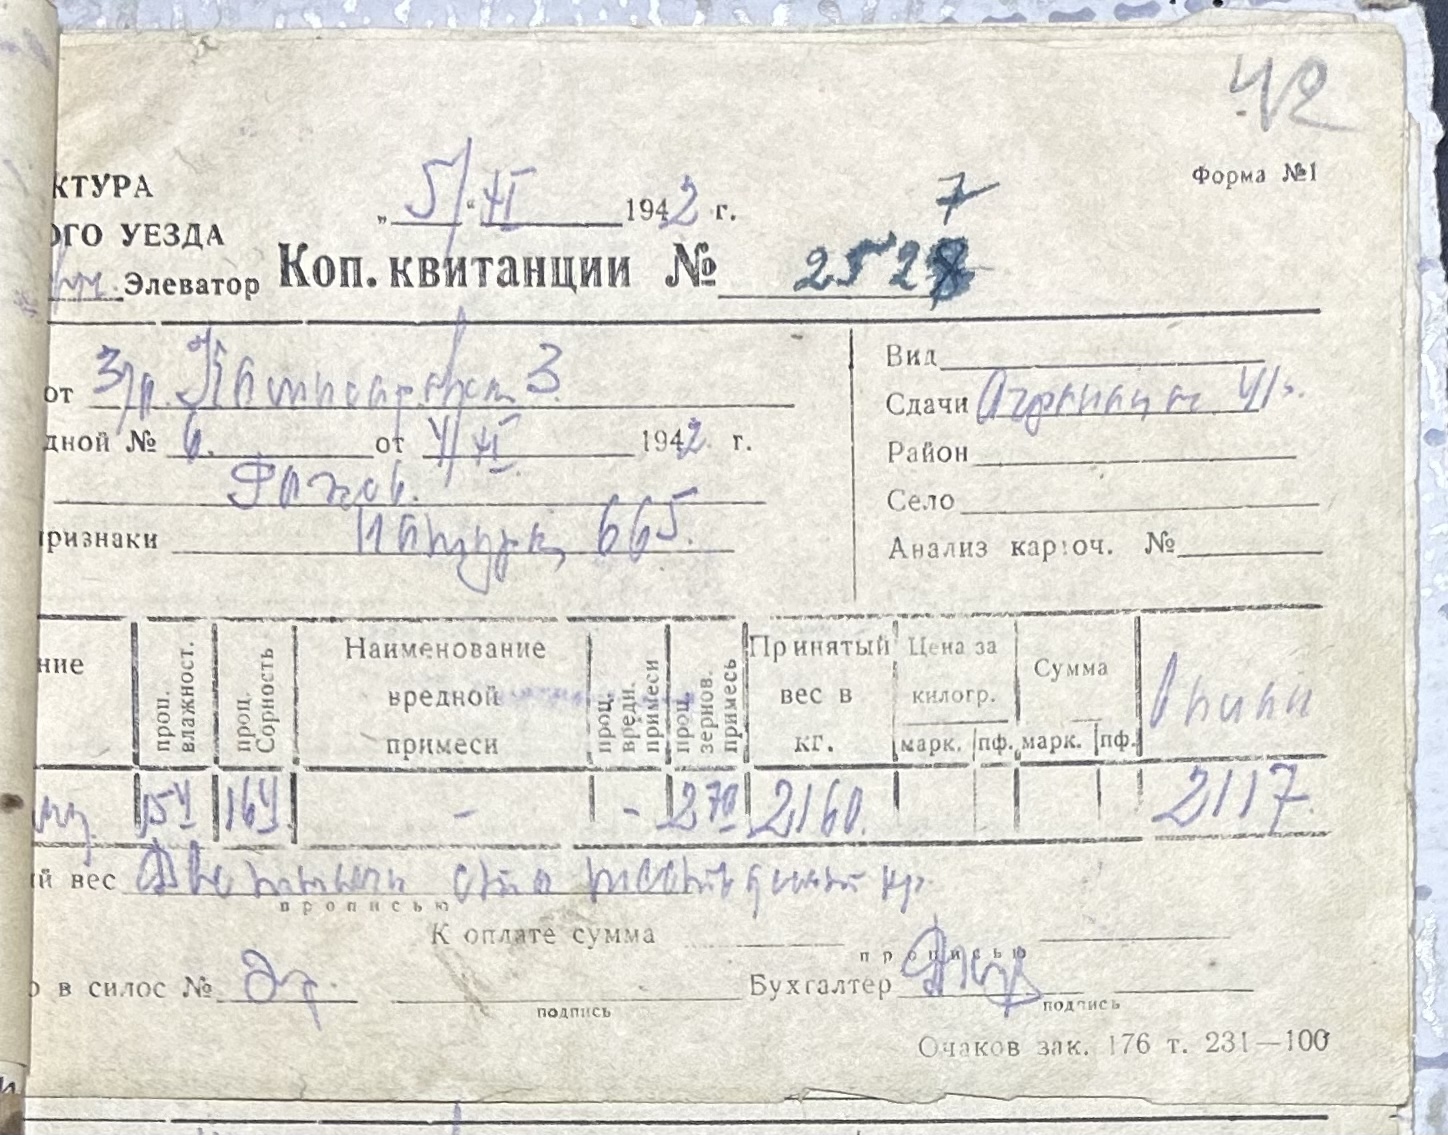 42
Форма №1
КТУРА
ОГО УЕЗДА
„ 5/ “ XI 1942 г.
7
Элеватор Коп. квитанции № 2528
от З/п. 3.
дной № 6. от 4/XI 1942 г.
ризнаки 665.
Вид
Сдачи
Район
Село
Анализ карточ. №
ние
проц. влажност.
проц. Сорность
Наименование вредной примеси
проц. вредн. примеси
проц. зернов. примесь
Принятый вес в кг.
Цена за килогр.
марк. пф.
Сумма
марк. пф.
154 164 - - 270 2160. 2117.
й вес Две тысячи сто шестьдесят кг.
прописью
К оплате сумма
прописью
о в силос №
подпись
Бухгалтер
подпись
Очаков зак. 176 т. 231—100